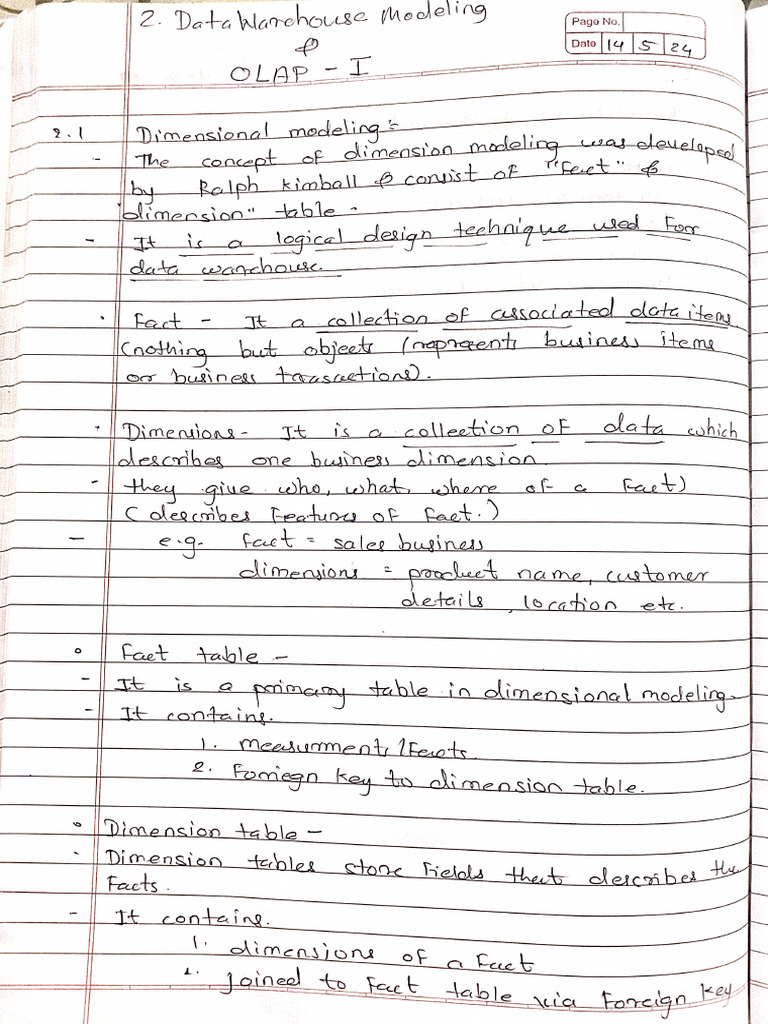 2. Data Warehouse Modeling
&
OLAP - I
Page No.
Date 14 5 24
2.1 Dimensional modeling :-
- The concept of dimension modeling was developed
by Ralph Kimball & consist of "Fact" &
"dimension" table.
- It is a logical design technique used For
data warehouse.
· Fact - It a collection of associated data items
(nothing but objects (represents business items
or business transactions).
· Dimensions - It is a collection of data which
describes one business dimension.
- they give who, what, where of a Fact)
(describes Features of Fact.)
- e.g. fact = sales business
dimensions = product name, customer
details, location etc.
∘ Fact table -
- It is a primary table in dimensional modeling.
- It contains.
1. measurments/Facts.
2. Forriegn key to dimension table.
∘ Dimension table -
· Dimension tables store Fields that describes the
Facts.
- It contains.
1. dimensions of a Fact
2. Joined to Fact table via Foreign key